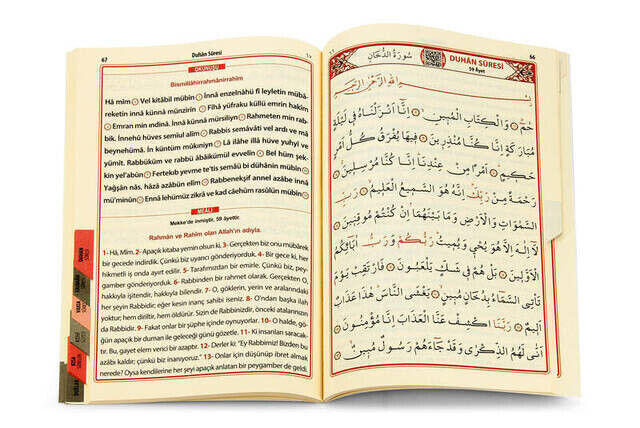 67
Duhân Sûresi
OKUNUŞU
Bismillâhirrahmânirrahîm
Hâ mîm Vel kitâbil mübîn İnnâ enzelnâhü fî leyletin mübâ-
reketin innâ künnâ münzirîn Fîhâ yüfraku küllü emrin hakîm
Emran min indinâ. İnnâ künnâ mürsilîyn Rahmeten min rab-
bik. İnnehû hüves semîul alîm Rabbis semâvâti vel ardı ve mâ
beynehümâ. İn küntüm mûkıniyn Lâ ilâhe illâ hüve yuhyî ve
yümît. Rabbüküm ve rabbü âbâikümül evvelîn Bel hüm şek-
kin yel'abûn Fertekib yevme te'tis semâü bi dühânin mübîn
Yağşân nâs, hâzâ azâbün elîm Rabbenekşif annel azâbe innâ
mü'minûn Ennâ lehümüz zikrâ ve kad câehüm rasûlün mübîn
MEÂLİ
Mekke'de inmiştir. 59 âyettir.
Rahmân ve Rahîm olan Allah'ın adıyla.
1- Hâ, Mîm. 2- Apaçık kitaba yemin olsun ki, 3- Gerçekten biz onu mübârek
bir gecede indirdik. Çünkü biz uyarıcı gönderiyorduk. 4- Bir gece ki, her
hikmetli iş onda ayırt edilir. 5- Tarafımızdan bir emirle. Çünkü biz, pey-
gamber gönderiyorduk. 6- Rabbinden bir rahmet olarak. Gerçekten O,
hakkıyla işitendir, hakkıyla bilendir. 7- O, göklerin, yerin ve aralarındaki
her şeyin Rabbidir; eğer kesin inanç sahibi iseniz. 8- O'ndan başka ilah
yoktur; hem diriltir, hem öldürür. Sizin de Rabbinizdir, önceki atalarınızın
da Rabbidir. 9- Fakat onlar bir şüphe içinde oynuyorlar. 10- O halde, gö-
ğün apaçık bir duman ile geleceği günü gözetle. 11- Ki insanları saracak-
tır. Bu, gayet elem verici bir azaptır. 12- Derler ki: "Ey Rabbimiz! Bizden bu
azâbı kaldır; çünkü biz inanıyoruz." 13- Onlar için düşünüp ibret almak
nerede? Oysa kendilerine her şeyi apaçık anlatan bir peygamber de geldi.
66
سُورَةُ الدُّخَانِ
DUHÂN SÛRESİ
59 Âyet
بِسْمِ اللّٰهِ الرَّحْمٰنِ الرَّحِيمِ
حٰمٓ وَالْكِتَابِ الْمُبِينِ اِنَّٓا اَنْزَلْنَاهُ فِي لَيْلَةٍ
مُبَارَكَةٍ اِنَّا كُنَّا مُنْذِرِينَ فِيهَا يُفْرَقُ كُلُّ اَمْرٍ
حَكِيمٍ اَمْرًا مِنْ عِنْدِنَا اِنَّا كُنَّا مُرْسِلِينَ
رَحْمَةً مِنْ رَبِّكَ اِنَّهُ هُوَ السَّمِيعُ الْعَلِيمُ رَبِّ
السَّمٰوَاتِ وَالْاَرْضِ وَمَا بَيْنَهُمَا اِنْ كُنْتُمْ مُوقِنِينَ
لَٓا اِلٰهَ اِلَّا هُوَ يُحْيِي وَيُمِيتُ رَبُّكُمْ وَرَبُّ اٰبَٓائِكُمُ
الْاَوَّلِينَ بَلْ هُمْ فِي شَكٍّ يَلْعَبُونَ فَارْتَقِبْ يَوْمَ
تَأْتِي السَّمَٓاءُ بِدُخَانٍ مُبِينٍ يَغْشَى النَّاسَ هٰذَا عَذَابٌ
اَلِيمٌ رَبَّنَا اكْشِفْ عَنَّا الْعَذَابَ اِنَّا مُؤْمِنُونَ
اَنّٰى لَهُمُ الذِّكْرٰى وَقَدْ جَٓاءَهُمْ رَسُولٌ مُبِينٌ